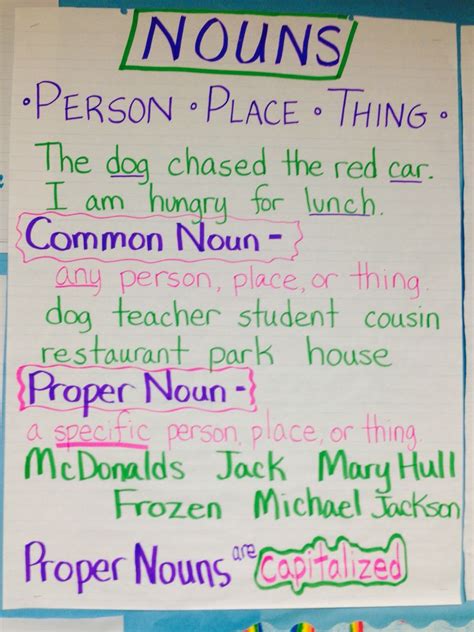 NOUNS
• PERSON • PLACE • THING •
The dog chased the red car.
I am hungry for lunch.
Common Noun -
any person, place, or thing.
dog teacher student cousin
restaurant park house
Proper Noun -
a specific person, place, or thing.
McDonalds Jack Mary Hull
Frozen Michael Jackson
Proper Nouns are capitalized